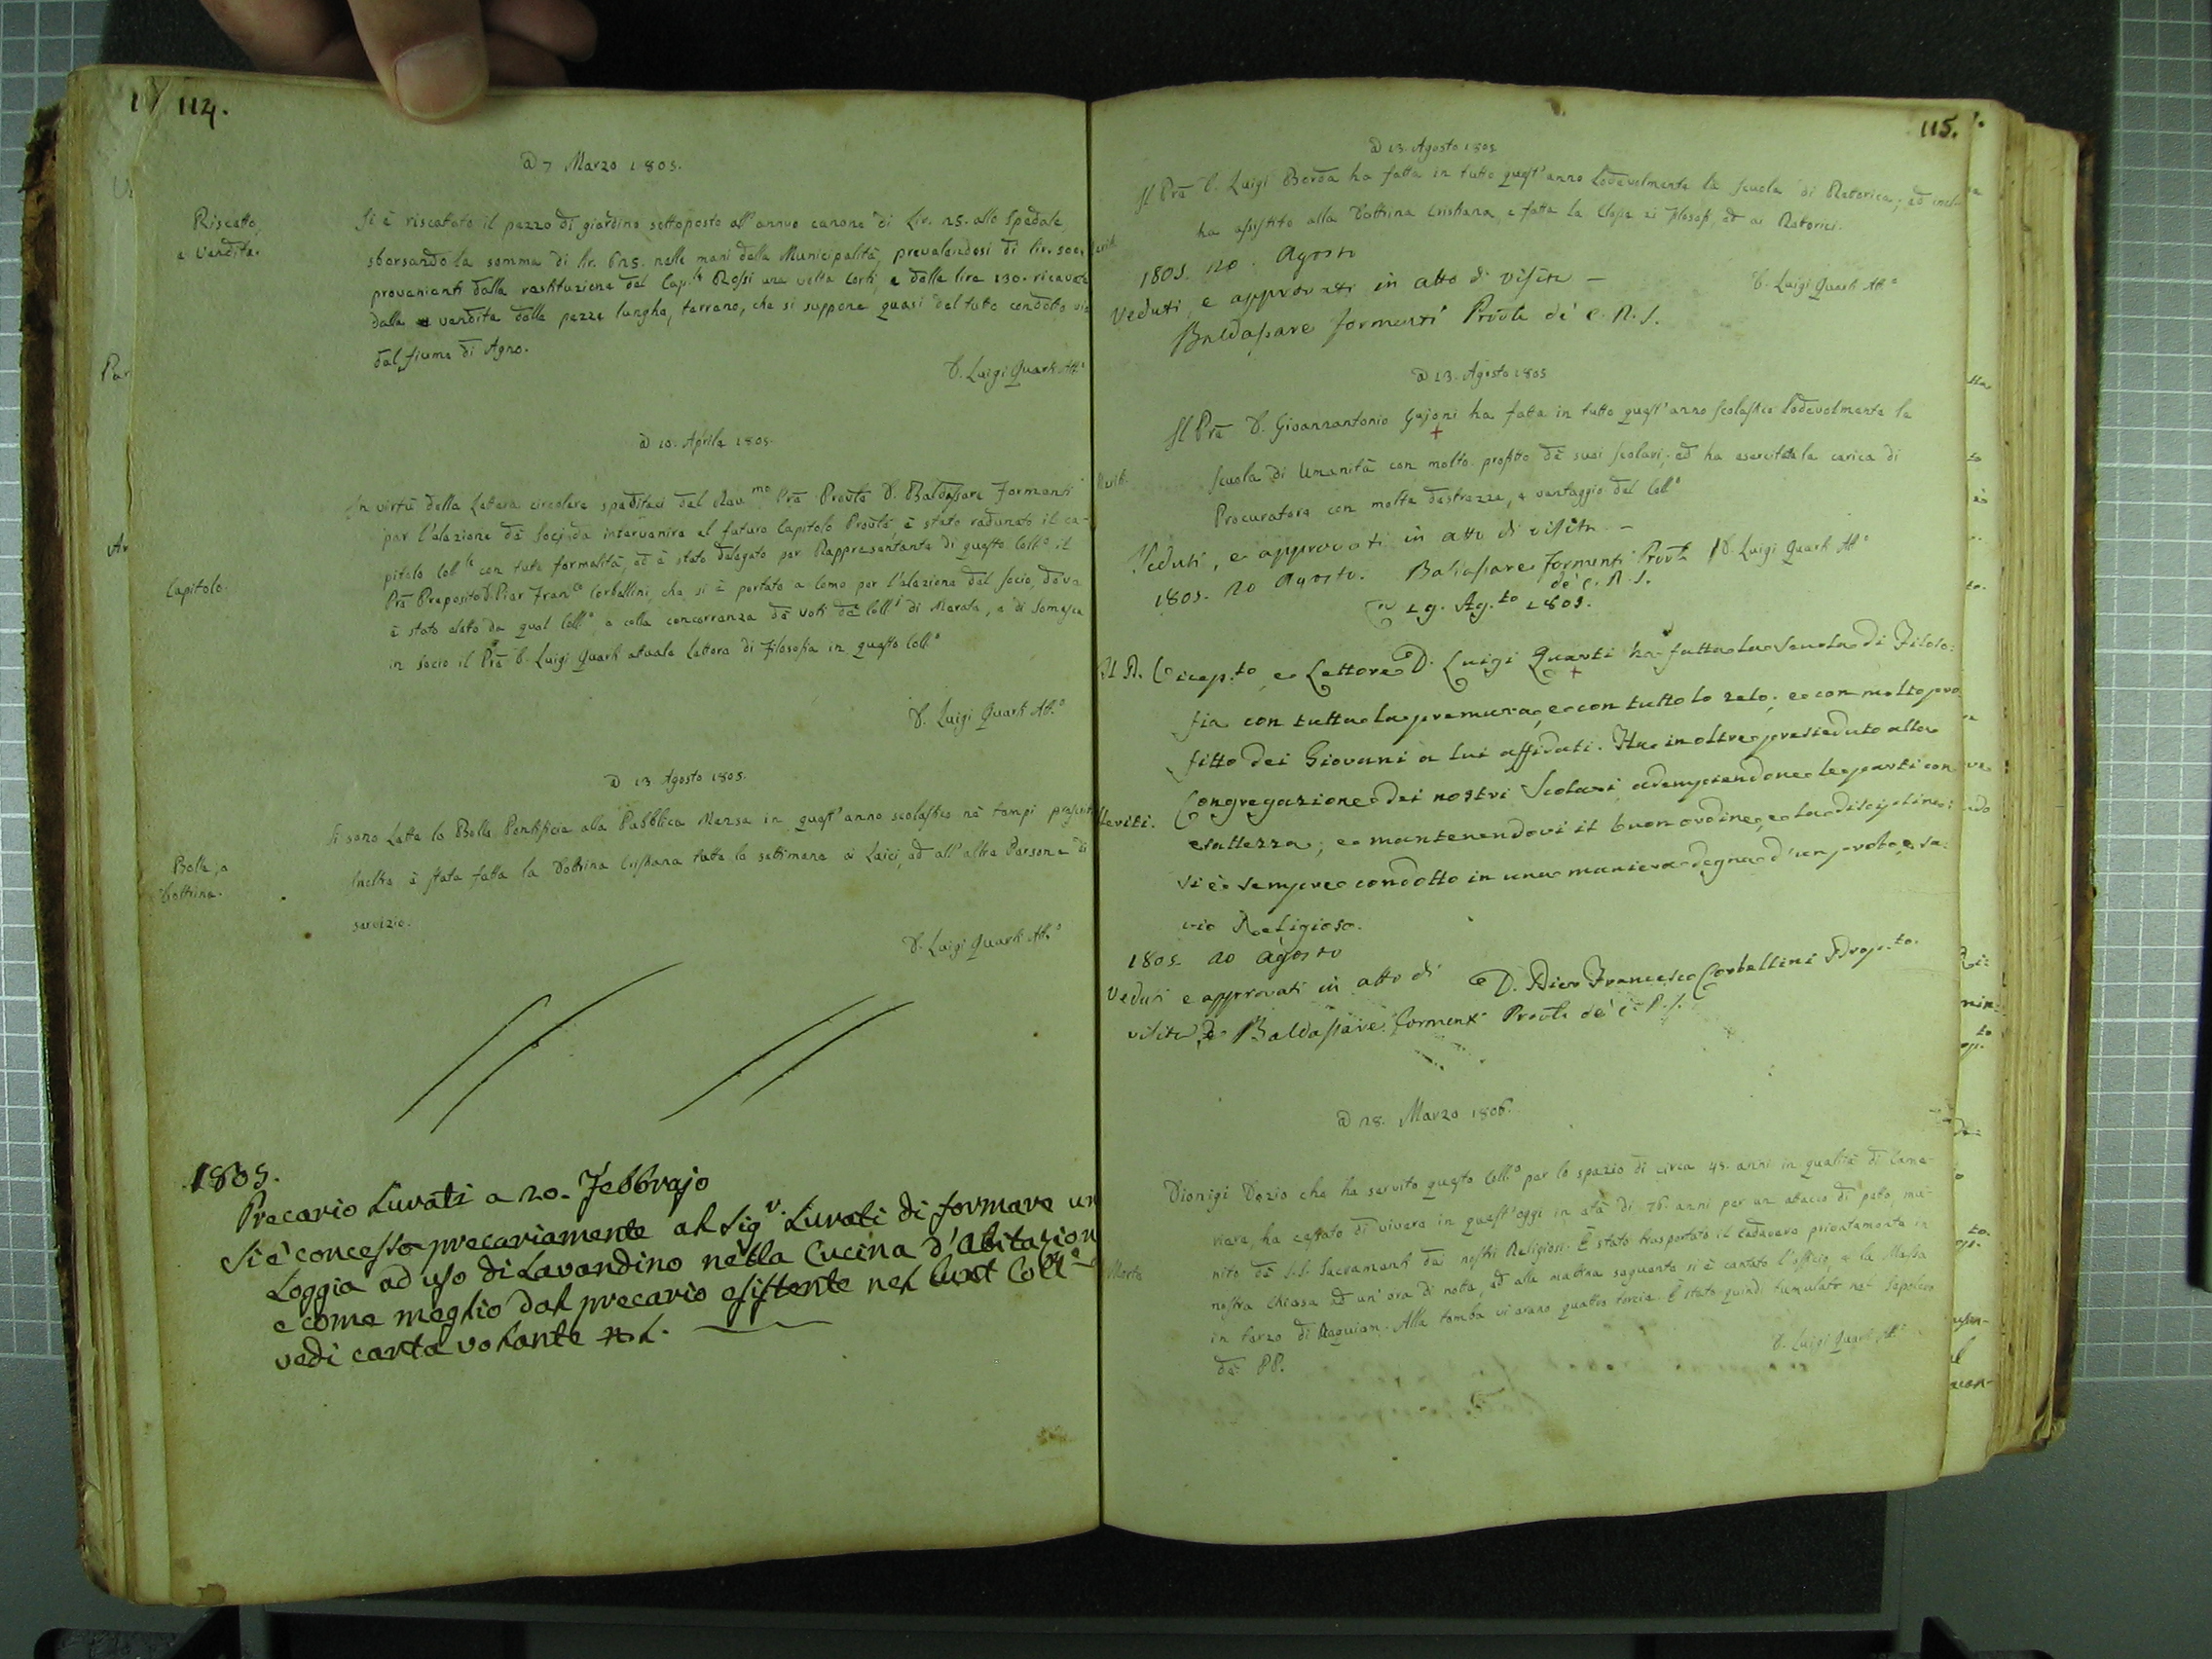 114.
@ 7 Marzo 1805.
Riscatto,
e Vendita.
Si è riscattato il pezzo di giardino sottoposto all'annuo canone di Lir. 25. allo Spedale,
sborsando la somma di lir. 625. nelle mani della Municipalità, prevalendosi di lir. 500.
provenienti dalla restituzione del Cap.le Rossi una volta Corti, e dalle lire 130. ricavate
dalla vendita delle pezze lunghe, terreno, che si suppone quasi del tutto condotto via
dal fiume di Agno.
D. Luigi Quarti Att.o
@ 10. Aprile 1805.
Capitolo.
In virtù della Lettera circolare speditaci dal Rev.mo Prē Provle D. Baldassare Formenti
per l'elezione dè Socj da intervenire al futuro Capitolo Provle, è stato radunato il ca-
pitolo Coll.le con tutte formalità, ed è stato delegato per Rappresentante di questo Coll.o il
Prē Preposito D. Pier Fran.co Corbellini, che si è portato a Como per l'elezione del Socio, dove
è stato eletto da quel Coll.o, e colla concorrenza dè voti dè Coll.j di Merate, e di Somasca
in socio il Prē D. Luigi Quarti attuale Lettore di Filosofia in questo Coll.o
D. Luigi Quarti Att.o
@ 13 Agosto 1805.
Bolle, e
Dottrina.
Si sono Lette le Bolle Pontificie alla Pubblica Mensa in quest'anno scolastico nè tempi prescritti
Inoltre è stata fatta la Dottrina Cristiana tutte le settimane ai Laici, ed all'altre Persone di
servizio.
D. Luigi Quarti Att.o
1805.
Precario Lurati a 20. Febbrajo
Si è concesso precariamente al Sig.r Lurati di formare un
Loggia ad uso di Lavandino nella Cucina d'Abitazion
e come meglio dal precario esistente nel Coll.o
vedi carta volante
115.
@ 13. Agosto 1805
Il Prē D. Luigi Borda ha fatta in tutto quest'anno Lodevolmente la Scuola di Retorica; ed
ha assistito alla Dottrina Cristiana, e fatta la Classe ai Filosofi, ed ai Retorici.
D. Luigi Quarti Att.o
1805. 20. Agosto
Veduti, e approvati in atto di visita —
Baldassare Formenti Provle de' C. R. S.
@ 13. Agosto 1805
Il Prē D. Gioanantonio Gajoni ha fatta in tutto quest'anno scolastico Lodevolmente la
Scuola di Umanità con molto profitto dè suoi scolari; ed ha esercitata la carica di
Procuratore con molta destrezza, e vantaggio del Coll.o
D. Luigi Quarti Att.o
Veduti, e approvati in atto di visita —
1805. 20 Agosto. Baldassare Formenti Provle
de' C. R. S.
@ 19. Ag.to 1805.
Meriti.
Il R. Vicep.to e Lettore D. Luigi Quarti ha fatta la Scuola di Filoso:
fia con tutta la premura, e con tutto lo zelo, e con molto pro
fitto dei Giovani a lui affidati. Ha inoltre presieduto alla
Congregazione dei nostri Scolari adempiendone le parti con
esattezza, e mantenendovi il buon ordine, e la disciplina:
si è sempre condotto in una maniera degna d'un probo, e sa:
vio Religioso.
D. Pier Francesco Corbellini Prep.to
1805. 20 Agosto
Veduti e approvati in atto di
visita Baldassare Formenti Provle de' C. R. S.
@ 28. Marzo 1806.
Morte
Dionigi Dozio che ha servito questo Coll.o per lo spazio di circa 45. anni in qualità di Came-
riere, ha cessato di vivere in quest'oggi in età di 76. anni per un attacco di petto, mu-
nito dè S.S. Sacramenti dai nostri Religiosi. È stato trasportato il cadavere privatamente in
nostra Chiesa ad un'ora di notte, ed alla mattina seguente si è cantato l'Officio, e la Messa
in terzo di Requiem. Alla tomba vi erano quattro torcie. È stato quindi tumulato nel Sepolcro
dè PP.
D. Luigi Quarti Att.o